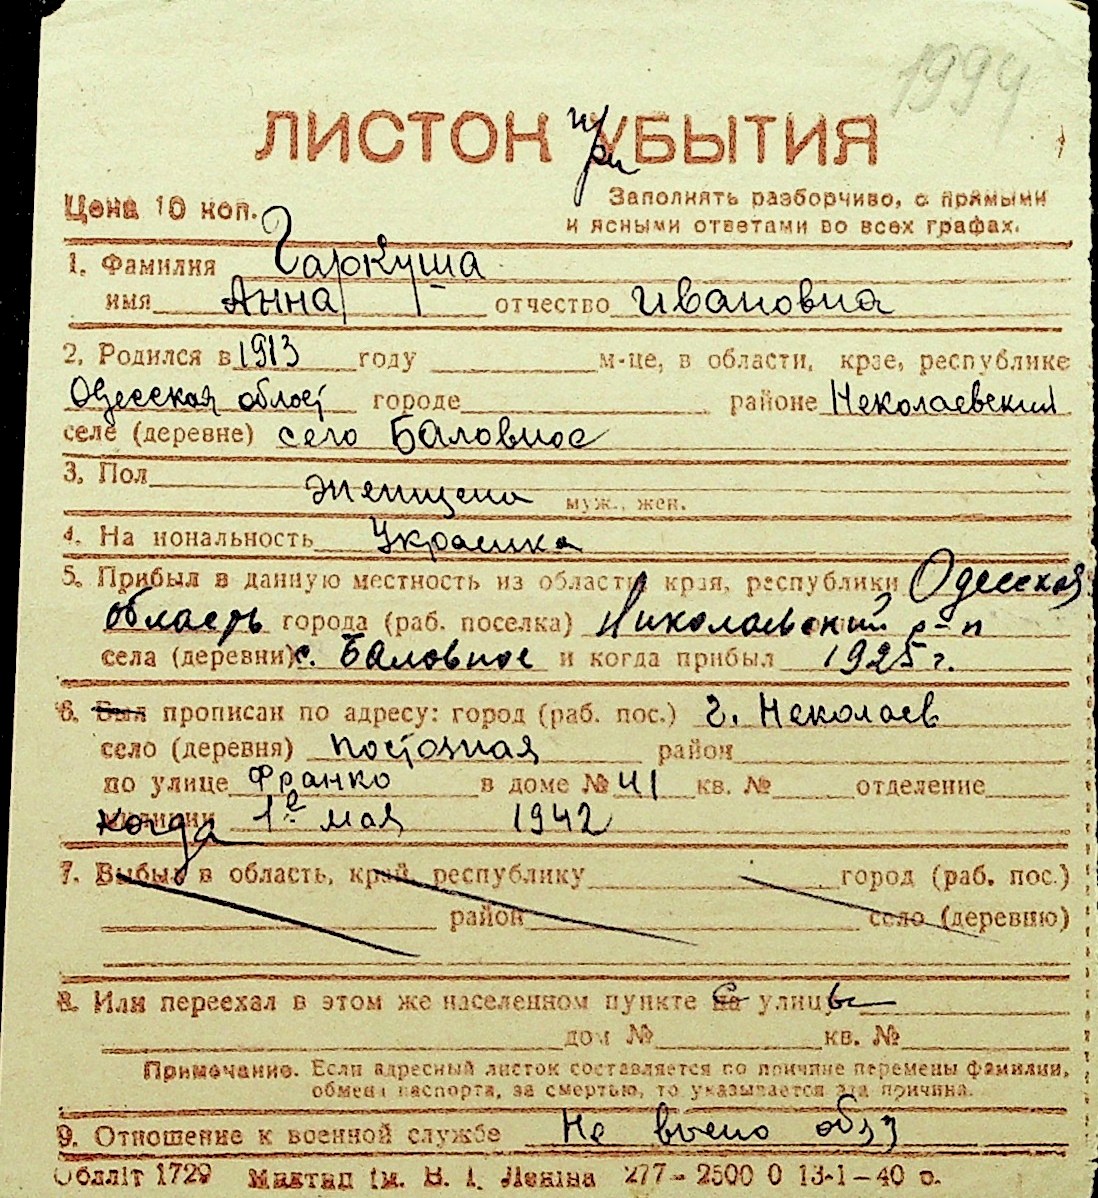 1994
ЛИСТОК при УБЫТИЯ
Цена 10 коп.
Заполнять разборчиво, с прямыми
и ясными ответами во всех графах.
1. Фамилия Гаркуша
имя Анна отчество Ивановна
2. Родился в 1913 году м-це, в области, крае, республике
Одесская област городе районе Неколаевский
селе (деревне) село Баловное
3. Пол женщена муж., жен.
4. На иональность Украинка
5. Прибыл в данную местность из области края, республики Одесская
область города (раб. поселка) Николаевский р-н
села (деревни) с. Баловное и когда прибыл 1925 г.
6. Был прописан по адресу: город (раб. пос.) г. Неколаев
село (деревня) постояная район
по улице Франко в доме № 41 кв. № отделение
милиции когда 1е мая 1942
7. Выбыл в область, край, республику город (раб. пос.)
район село (деревню)
8. Или переехал в этом же населенном пункте на с улицы
дом № кв. №
Примечание. Если адресный листок составляется по причине перемены фамилии,
обмена паспорта, за смертью, то указывается эта причина.
9. Отношение к военной службе Не воено обяз
Обллiт 1729 iм. В. I. Ленiна 277–2500 0 13-1-40 р.